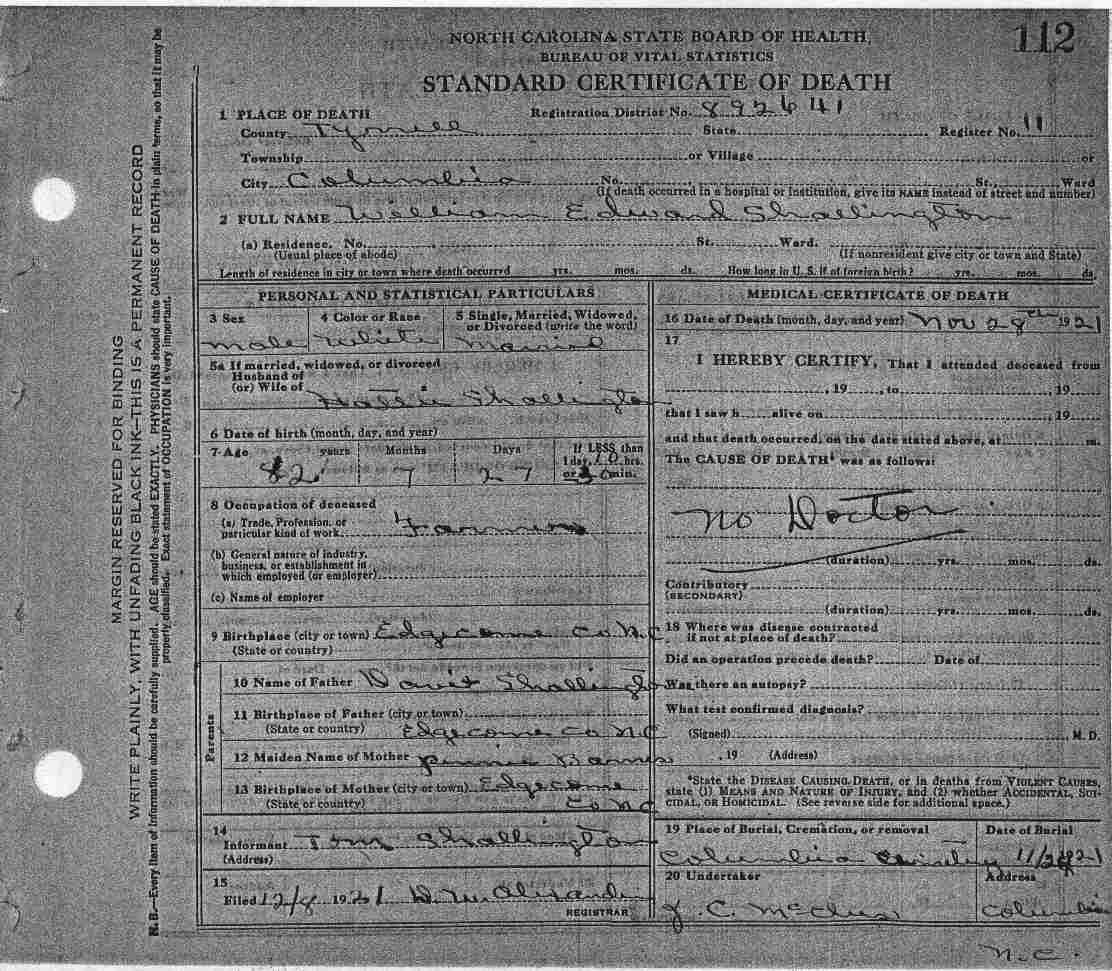 112
NORTH CAROLINA STATE BOARD OF HEALTH,
BUREAU OF VITAL STATISTICS
STANDARD CERTIFICATE OF DEATH
1 PLACE OF DEATH Registration District No. 892641
County Tyrrell State Register No. 11
Township or Village or
City Columbia No. St., Ward
(If death occurred in a hospital or institution, give its NAME instead of street and number)
2 FULL NAME William Edward Shallington
(a) Residence. No. St. Ward.
(Usual place of abode) (If nonresident give city or town and State)
Length of residence in city or town where death occurred yrs. mos. ds. How long in U. S. if of foreign birth? yrs. mos. ds.
PERSONAL AND STATISTICAL PARTICULARS
3 Sex 4 Color or Race 5 Single, Married, Widowed,
or Divorced (write the word)
male white Married
5a If married, widowed, or divorced
Husband of
(or) Wife of Shallington
6 Date of birth (month, day, and year)
7 Age years Months Days If LESS than
1 day, 10 hrs.
82 7 27 or 30 min.
8 Occupation of deceased
(a) Trade, Profession, or
particular kind of work Farmer
(b) General nature of industry,
business, or establishment in
which employed (or employer)
(c) Name of employer
9 Birthplace (city or town) Edgecome Co N.C
(State or country)
Parents
10 Name of Father David Shallington
11 Birthplace of Father (city or town)
(State or country) Edgecome Co N C
12 Maiden Name of Mother Pennie Barnes
13 Birthplace of Mother (city or town) Edgecome
(State or country) Co N C
14
Informant Tom Shallington
(Address)
15
Filed 12/8 1921 D. M. Alexander
REGISTRAR
MEDICAL CERTIFICATE OF DEATH
16 Date of Death (month, day, and year) Nov 28th 1921
17
I HEREBY CERTIFY, That I attended deceased from
, 19 , to , 19
that I saw h alive on , 19
and that death occurred, on the date stated above, at m.
The CAUSE OF DEATH* was as follows:
No Doctor
(duration) yrs. mos. ds.
Contributory
(SECONDARY)
(duration) yrs. mos. ds.
18 Where was disease contracted
if not at place of death?
Did an operation precede death? Date of
Was there an autopsy?
What test confirmed diagnosis?
(Signed) M. D.
, 19 (Address)
*State the DISEASE CAUSING DEATH, or in deaths from VIOLENT CAUSES,
state (1) MEANS AND NATURE OF INJURY, and (2) whether ACCIDENTAL, SUI-
CIDAL, OR HOMICIDAL. (See reverse side for additional space.)
19 Place of Burial, Cremation, or removal Date of Burial
Columbia 11/29/21
20 Undertaker Address
J. C. McClees Columbia
N.C.
MARGIN RESERVED FOR BINDING
WRITE PLAINLY, WITH UNFADING BLACK INK—THIS IS A PERMANENT RECORD
N. B.—Every item of information should be carefully supplied. AGE should be stated EXACTLY. PHYSICIANS should state CAUSE OF DEATH in plain terms, so that it may be
properly classified. Exact statement of OCCUPATION is very important.